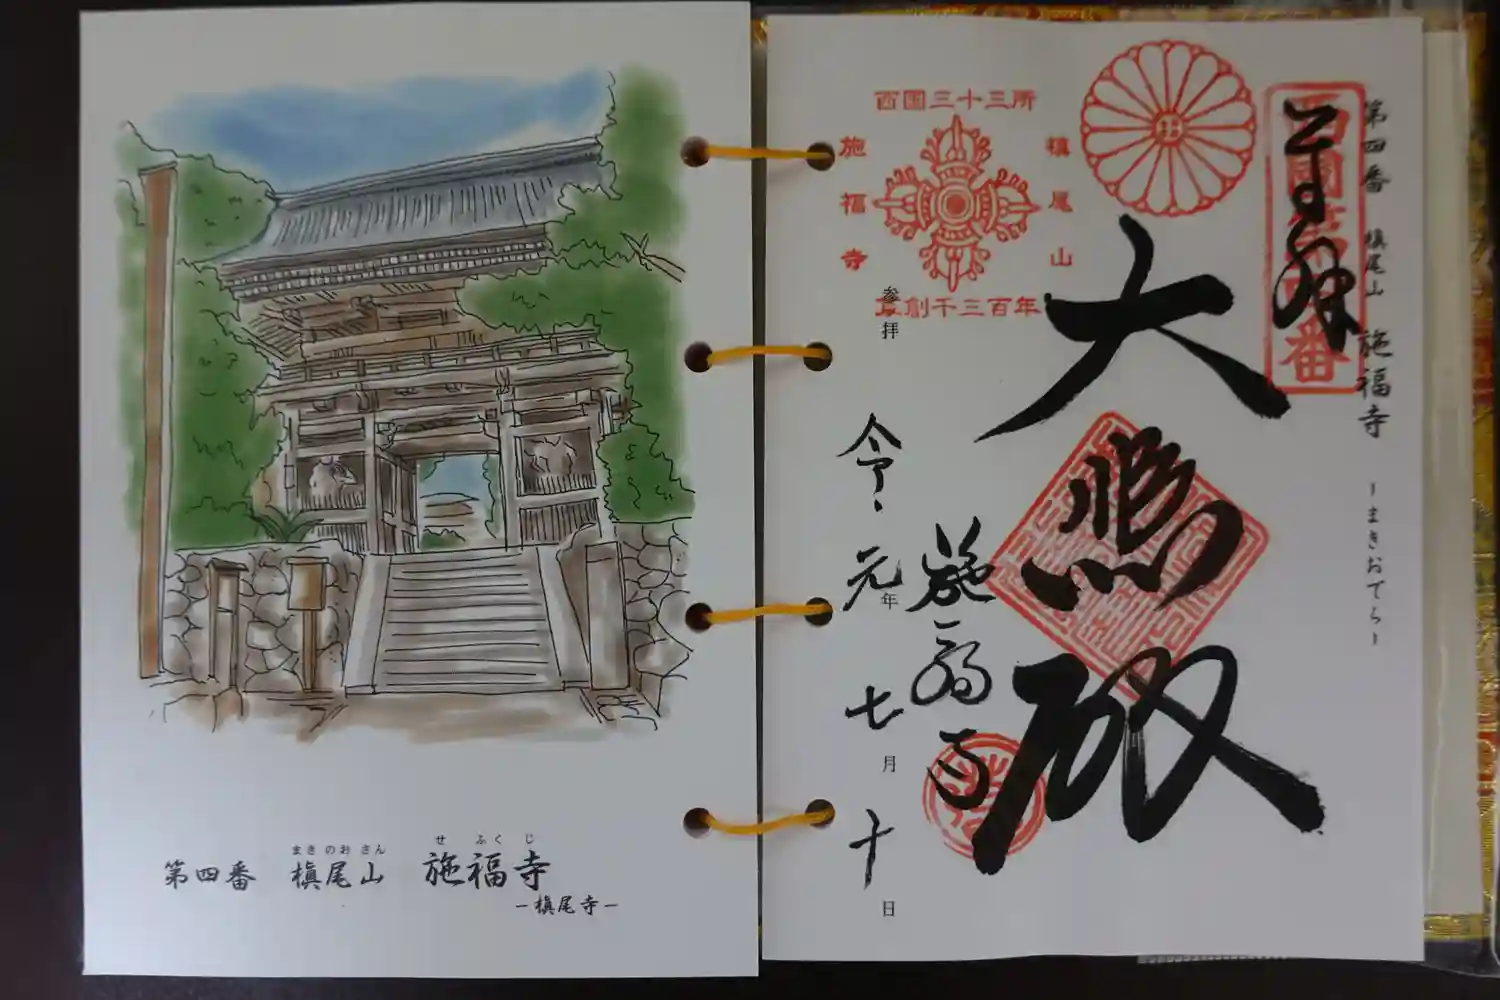 第四番 槇尾山 施福寺
まきのおさん せふくじ
－槇尾寺－
第四番 槇尾山 施福寺 －まきおでら－
奉拝
大悲殿
施福寺
令和元年七月十日
参拝
西国三十三所
槇尾山
施福寺
草創千三百年